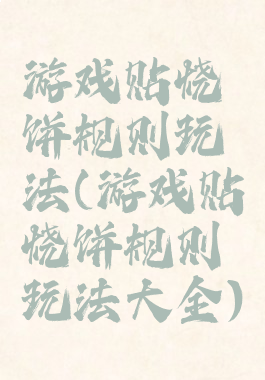 游戏贴烧
饼规则玩
法(游戏贴
烧饼规则
玩法大全)